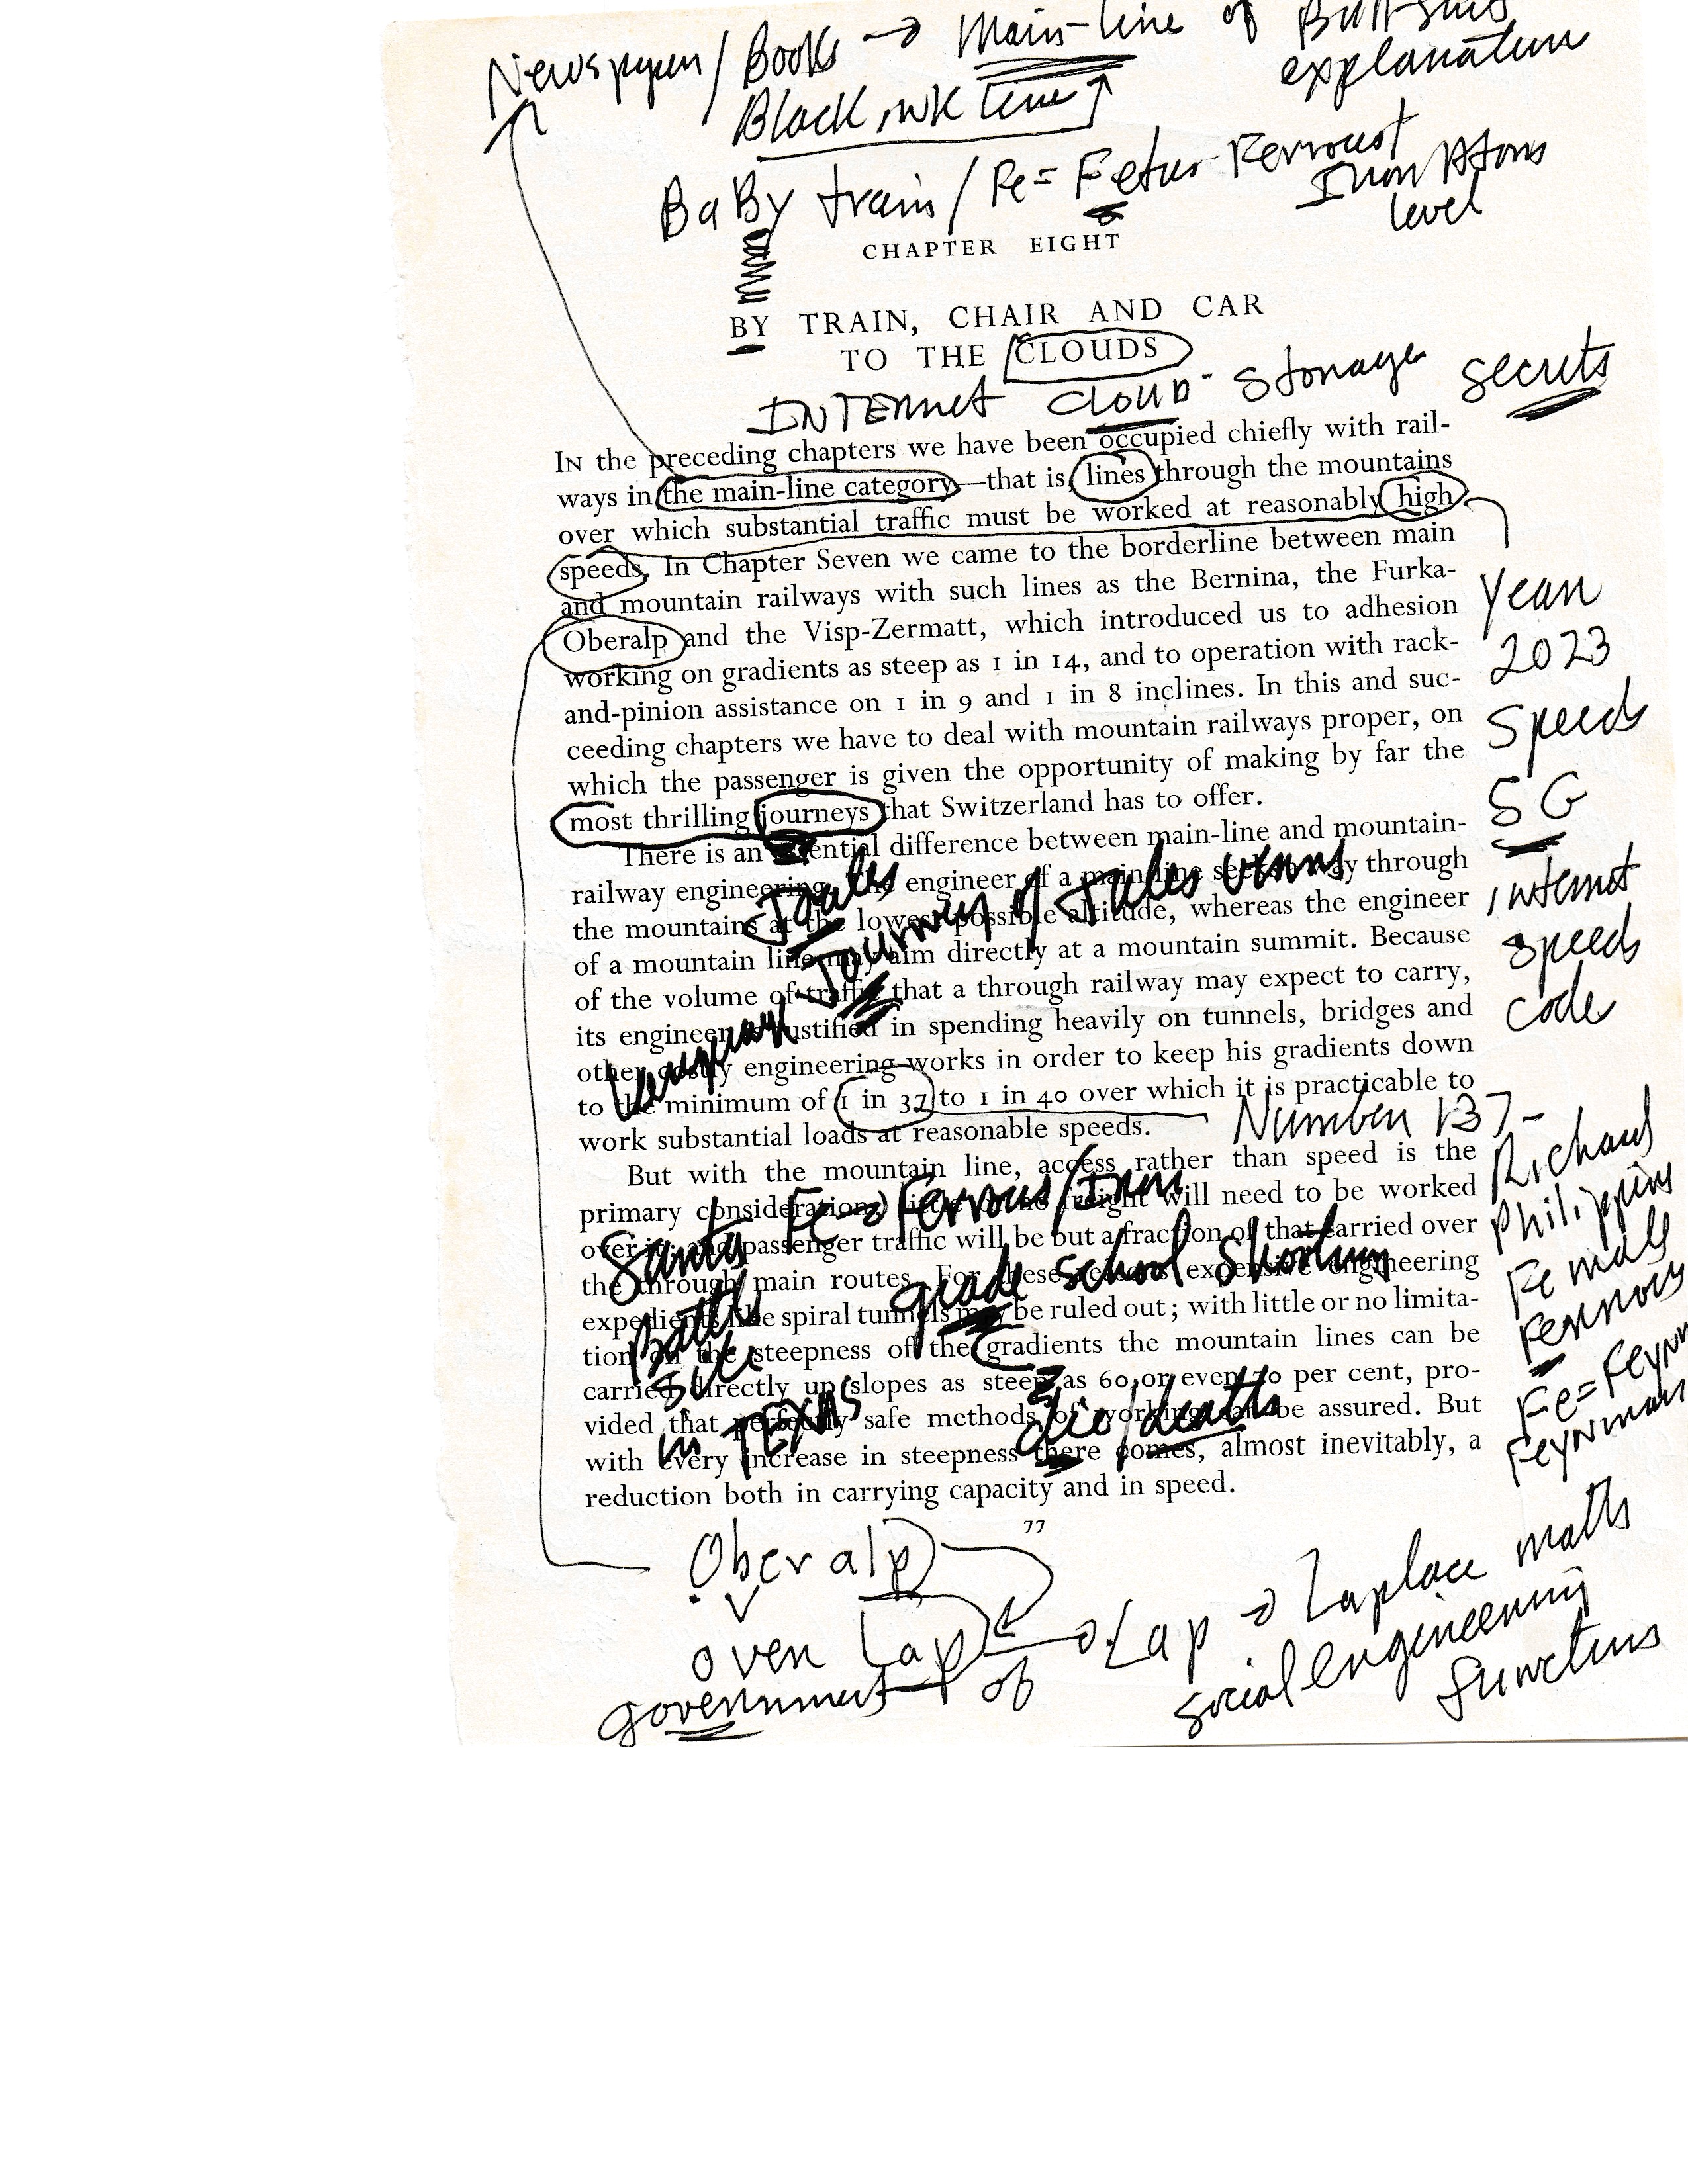 Newspaper/Books → Main-line of
explanation
Black ink line
BaBy train/Fe = Fetus Ferrous
Iron Atoms
level
CHAPTER EIGHT
BY TRAIN, CHAIR AND CAR
TO THE CLOUDS
INTERnet CLOUD- storage secrets
IN the preceding chapters we have been occupied chiefly with rail-
ways in the main-line category—that is, lines through the mountains
over which substantial traffic must be worked at reasonably high
speeds. In Chapter Seven we came to the borderline between main
and mountain railways with such lines as the Bernina, the Furka-
Oberalp and the Visp-Zermatt, which introduced us to adhesion
working on gradients as steep as 1 in 14, and to operation with rack-
and-pinion assistance on 1 in 9 and 1 in 8 inclines. In this and suc-
ceeding chapters we have to deal with mountain railways proper, on
which the passenger is given the opportunity of making by far the
most thrilling journeys that Switzerland has to offer.
There is an essential difference between main-line and mountain-
railway engineering. The engineer of a main line seeks a way through
the mountains at the lowest possible altitude, whereas the engineer
of a mountain line may aim directly at a mountain summit. Because
of the volume of traffic that a through railway may expect to carry,
its engineer is justified in spending heavily on tunnels, bridges and
other costly engineering works in order to keep his gradients down
to the minimum of 1 in 37 to 1 in 40 over which it is practicable to
work substantial loads at reasonable speeds.
But with the mountain line, access rather than speed is the
primary consideration. Little or no freight will need to be worked
over it, and passenger traffic will be but a fraction of that carried over
the through main routes. For these reasons expensive engineering
expedients like spiral tunnels may be ruled out; with little or no limita-
tion on the steepness of the gradients the mountain lines can be
carried directly up slopes as steep as 60 or even 70 per cent, pro-
vided that perfectly safe methods of working can be assured. But
with every increase in steepness there comes, almost inevitably, a
reduction both in carrying capacity and in speed.
77
year
2023
Speeds
5G
internet
speed
code
Jules
Journey of Jules Verne
Number 137-
Richard
Philippins
Female
Ferrous
Fe = Feynn
Feynman
Santa Fe → Ferrous/Iron
Battle
site
in TEXAS
grade school shooting
die/death
Oberalp
over Lap ← Lap → Laplace math
government of
social engineering
functions